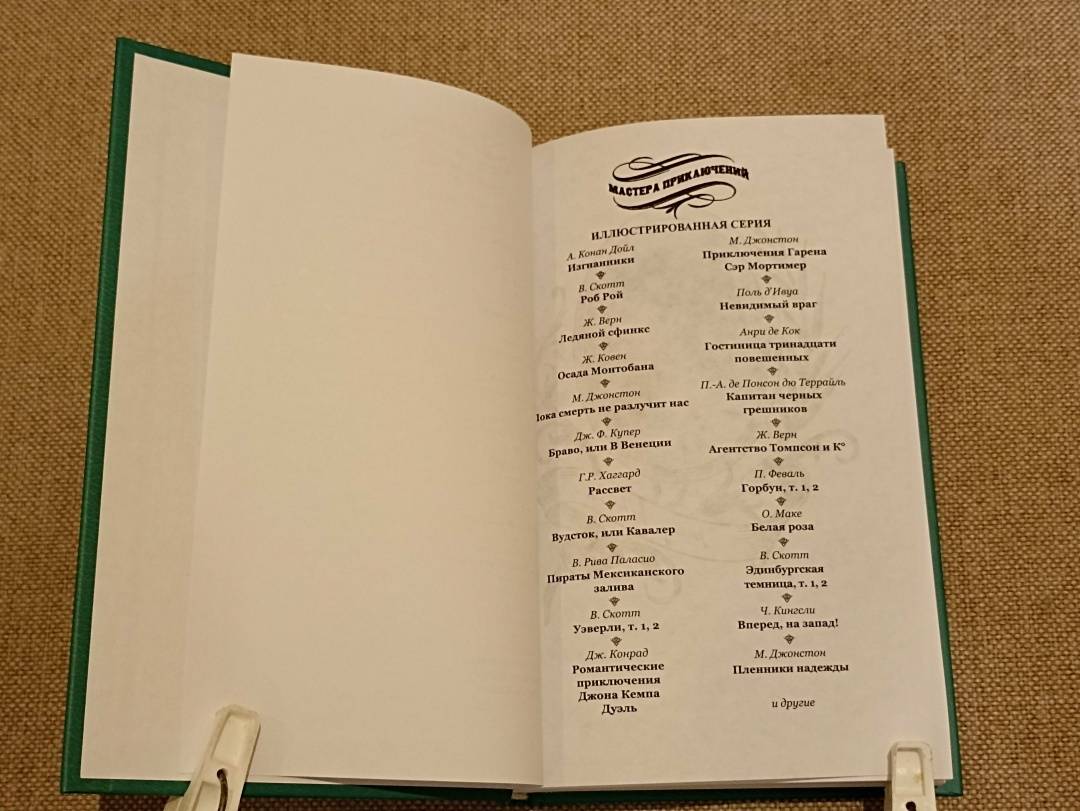 МАСТЕРА ПРИКЛЮЧЕНИЙ
ИЛЛЮСТРИРОВАННАЯ СЕРИЯ
А. Конан Дойл
Изгнанники
В. Скотт
Роб Рой
Ж. Верн
Ледяной сфинкс
Ж. Ковен
Осада Монтобана
М. Джонстон
смерть не разлучит нас
Дж. Ф. Купер
Браво, или В Венеции
Г.Р. Хаггард
Рассвет
В. Скотт
Вудсток, или Кавалер
В. Рива Паласио
Пираты Мексиканского
залива
В. Скотт
Уэверли, т. 1, 2
Дж. Конрад
Романтические
приключения
Джона Кемпа
Дуэль
М. Джонстон
Приключения Гарена
Сэр Мортимер
Поль д'Ивуа
Невидимый враг
Анри де Кок
Гостиница тринадцати
повешенных
П.-А. де Понсон дю Террайль
Капитан черных
грешников
Ж. Верн
Агентство Томпсон и К°
П. Феваль
Горбун, т. 1, 2
О. Маке
Белая роза
В. Скотт
Эдинбургская
темница, т. 1, 2
Ч. Кингсли
Вперед, на запад!
М. Джонстон
Пленники надежды
и другие